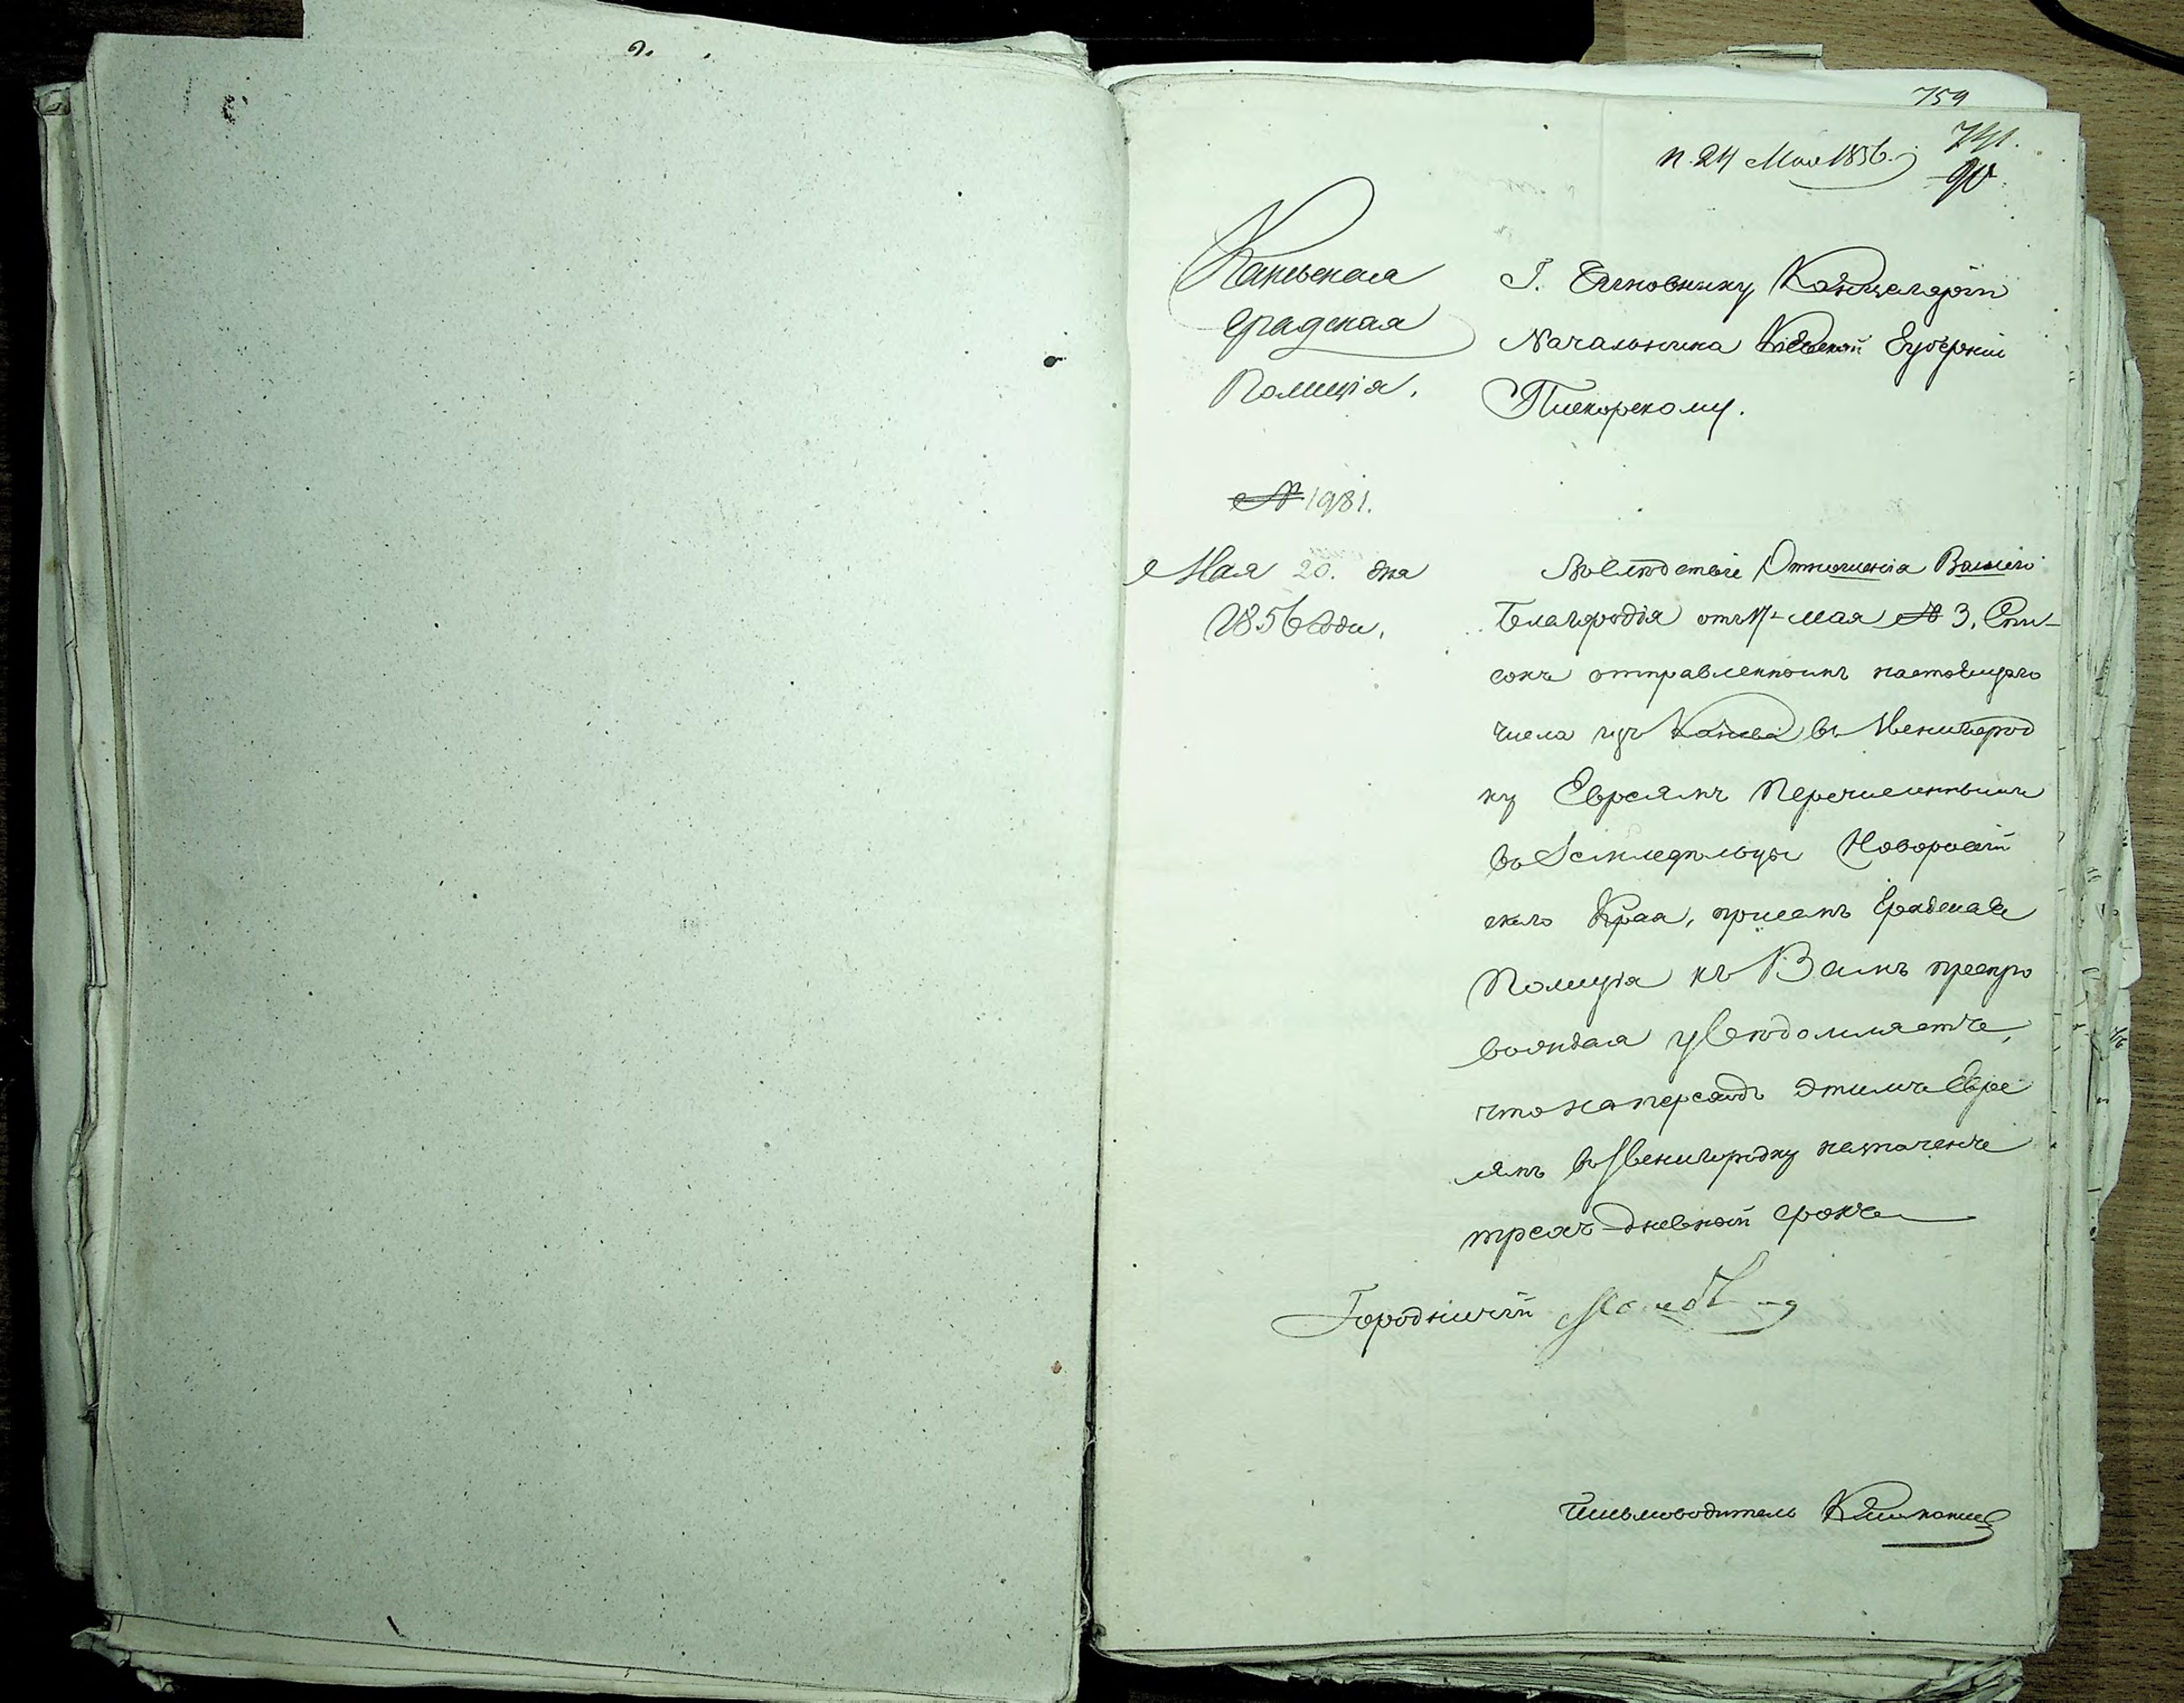 759
741.
90
п. 24 Мая 1856.
Каневская
градская
Полиція.
№ 1981.
Мая 20. дня
1856 года.
Г. Чиновнику Канцеляріи
Начальника Кіевской Губерніи
Пекорскому.
Вследствіе Отношенія Вашего
Благородія отъ 17 мая № 3, Спи-
сокъ отправленнымъ настоящаго
числа изъ Канева въ Звенигород
ку Евреямъ перечисленнымъ
въ Земледельцы Новороссій
скаго Края, при семъ Градская
Полиція къ Вамъ препро
вождая уведомляетъ,
что на переездъ этимъ Евре
ямъ въ Звенигородку назначенъ
трехъ дневной срокъ
Городничій
Письмоводитель